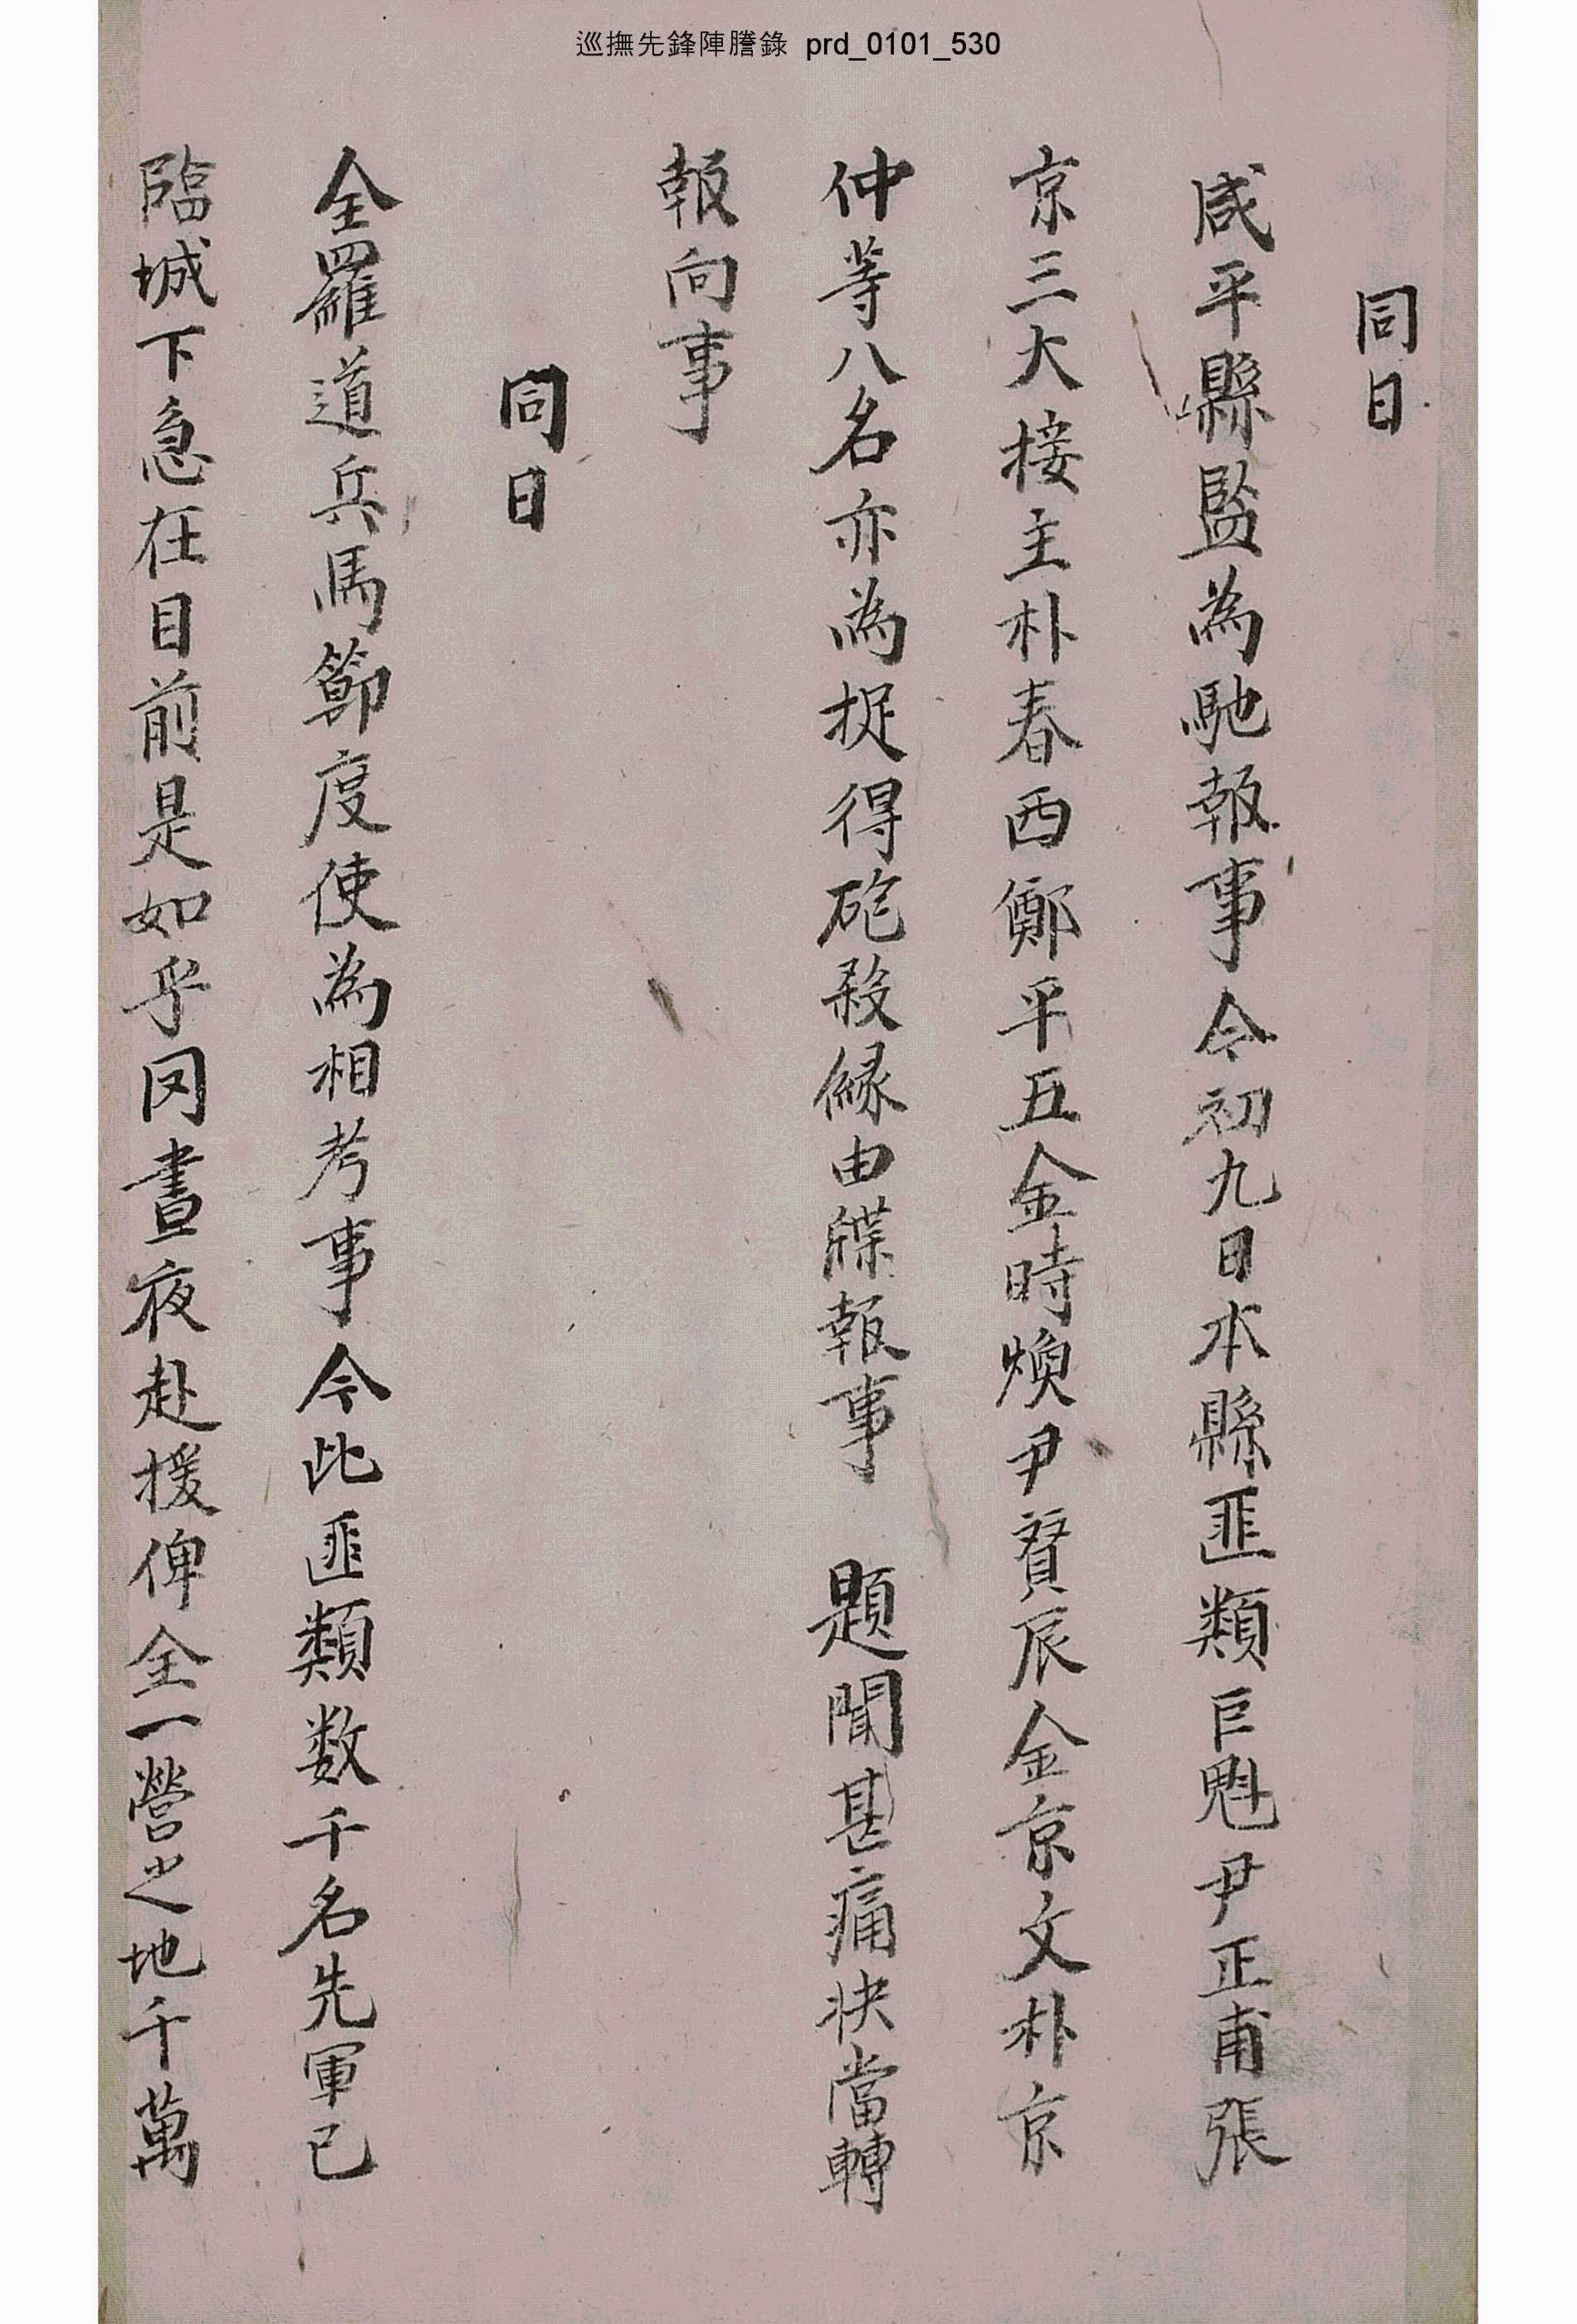 巡撫先鋒陣謄錄 prd_0101_530
同日
咸平縣監為馳報事今初九日本縣匪類巨魁尹正甫張
京三大接主朴春西鄭平五金時煥尹賛辰金京文朴京
仲等八名亦為捉得砲殺緣由牒報事 題聞甚痛快當轉
報向事
同日
全羅道兵馬節度使為相考事今此匪類数千名先軍已
臨城下急在目前是如乎罔晝夜赴援俾全一營之地千萬